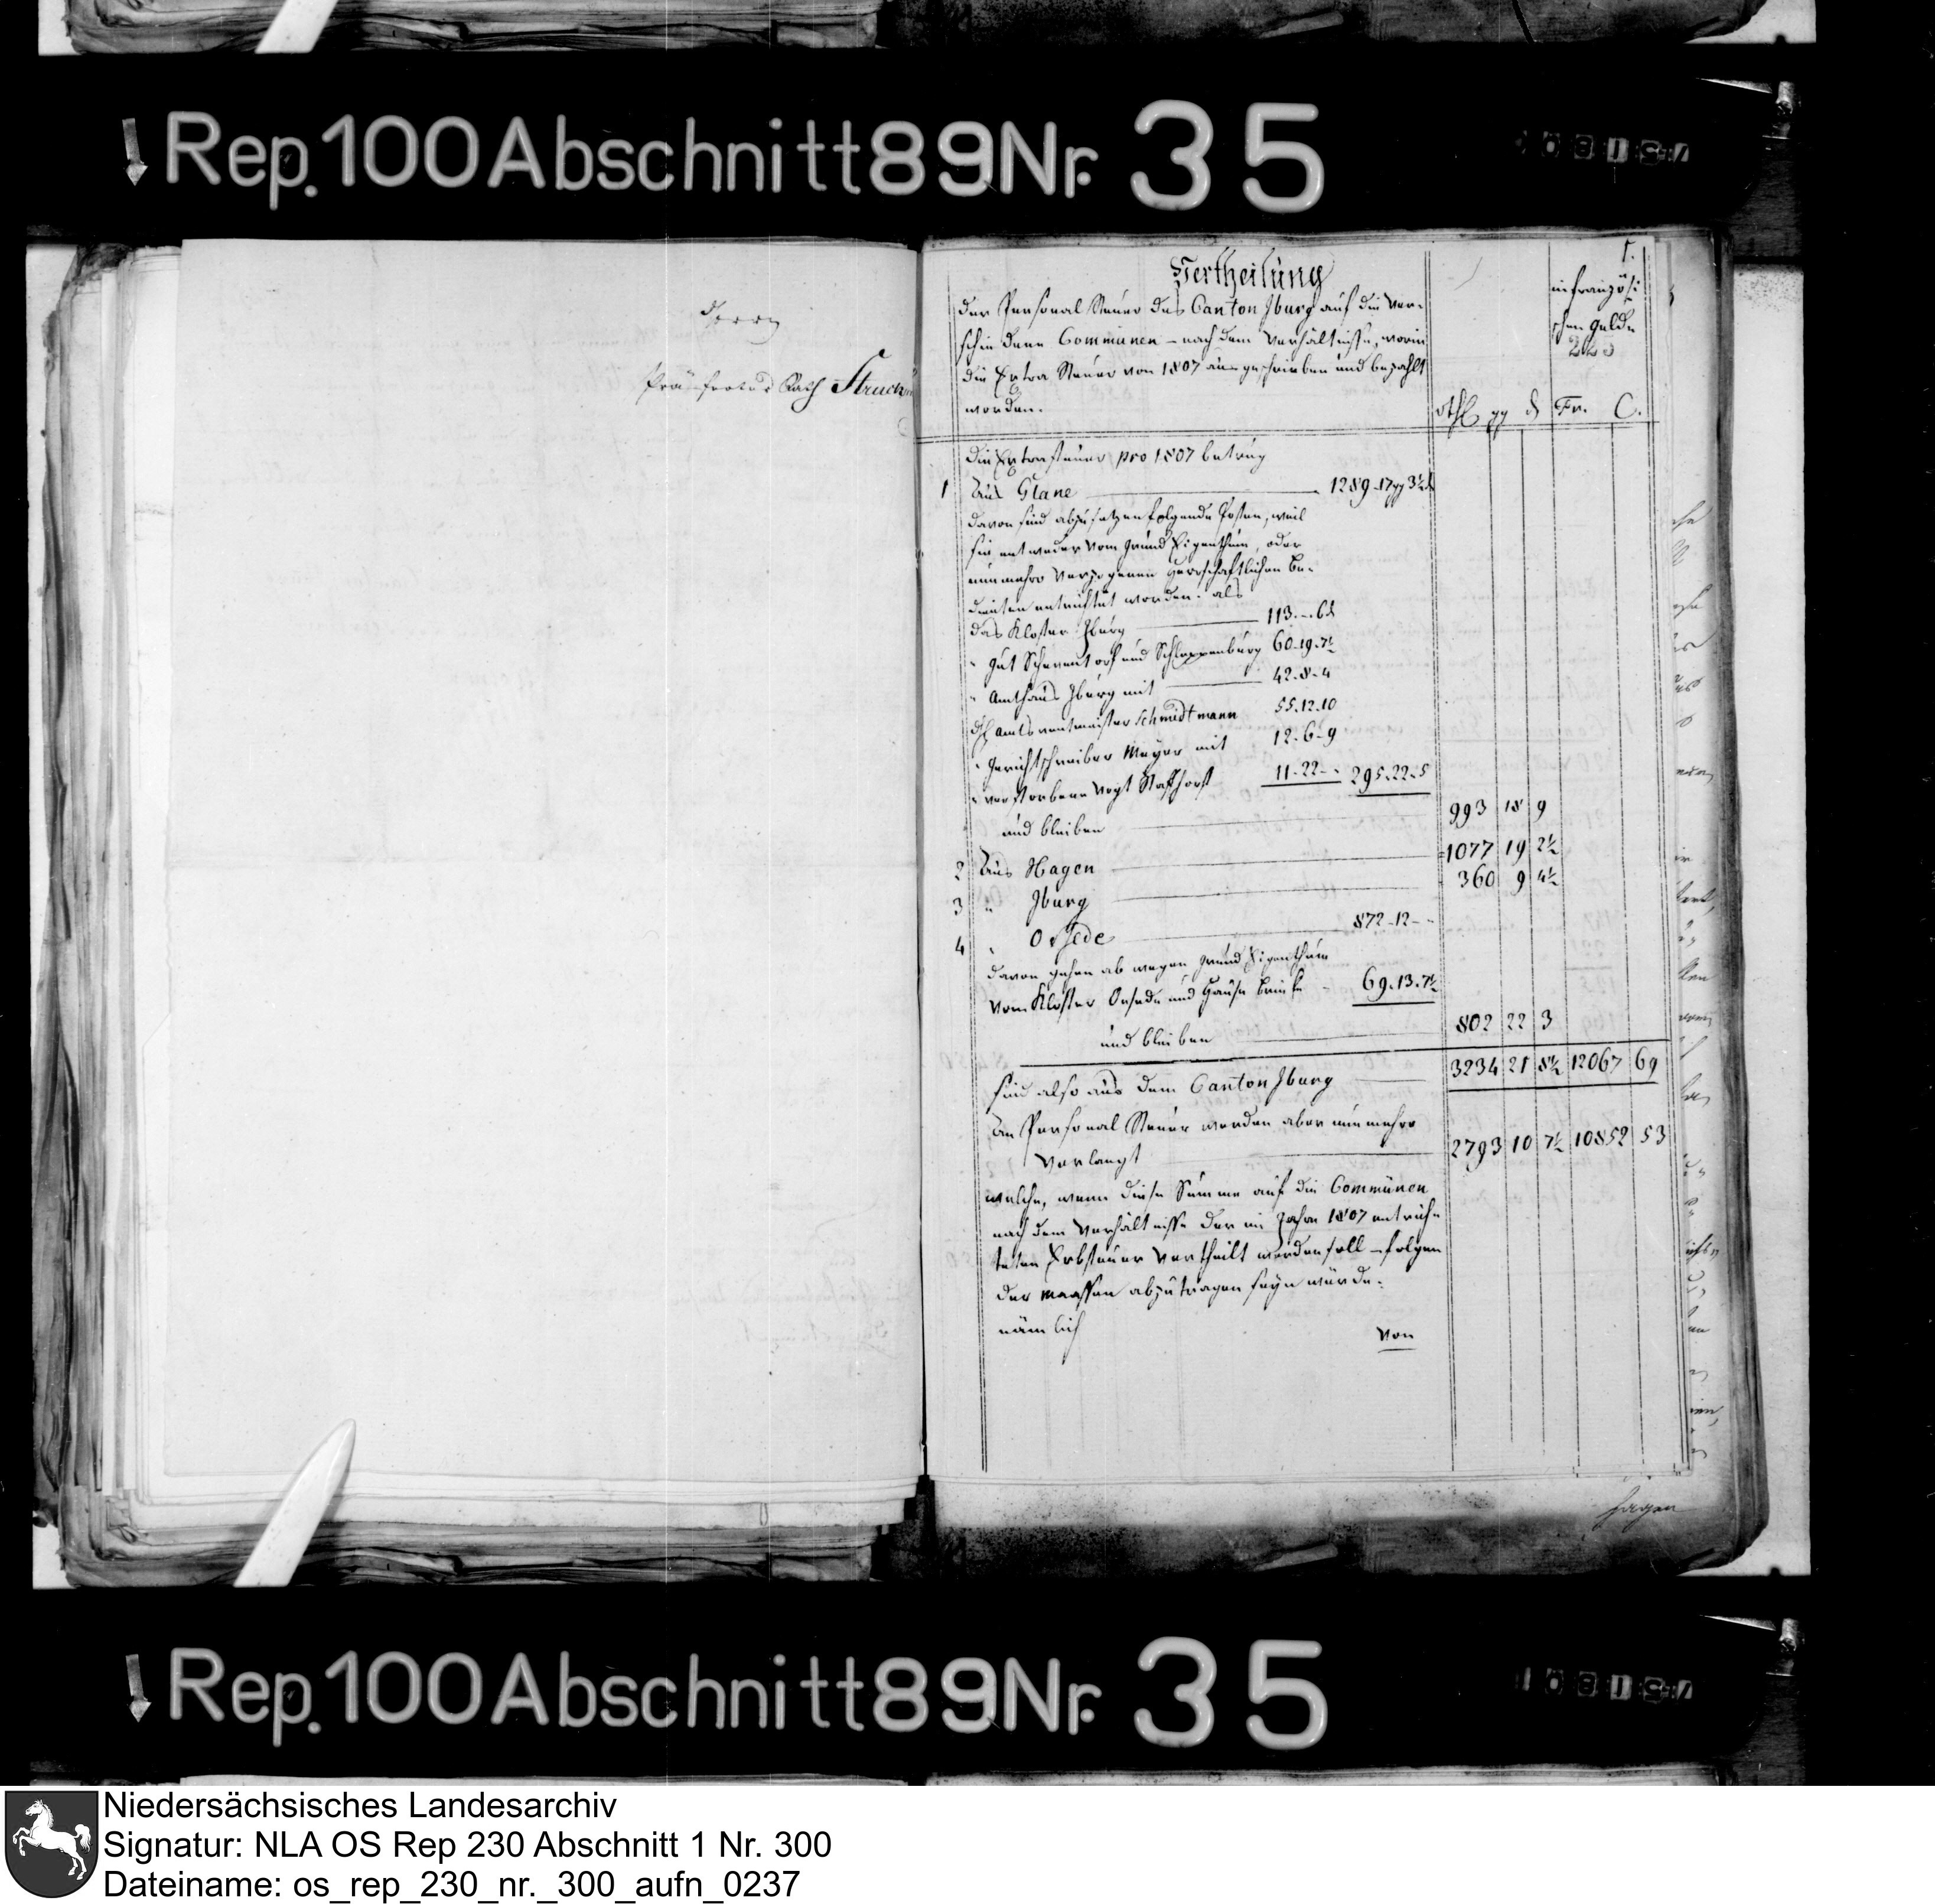 Rep. 100 Abschnitt 89 Nr. 35
Herrn
Präfectur Rath Struckm
Vertheilung
der Personal Steuer des Canton Iburg auf die ver-
schiedene Communen – nach dem Verhältnisse, worin
die Extra Steuer von 1807 ausgeschrieben und bezahlt
worden.
1.
in französi
schen Gelde
223
rthl gg d Fr. C.
Die Extrasteuer pro 1807 betrug
1 aus Glane 1289-17gg 3½d
davon sind abzusetzen folgende Posten, weil
sie entweder vom Grund Eigenthum, oder
nunmehro verzogenen herrschaftlichen Be-
dienten entrichtet worden: als
das Kloster Iburg 113.-.6d
" Gut Scheventorf und Schleppenburg 60-19-7½
" Amthaus Iburg mit 42-8-4
H Amtsrentmeister Schmidtmann 55.12.10
" Gerichtschreiber Meyer mit 12-6-9
" verstorbene Vogt Staffhorst 11-22-- 295.22-5
und bleiben 993 18 9
2 Aus Hagen 1077 19 2½
3 " Iburg 360 9 4½
4 " Oesede 872-12--
davon gehen ab wegen Grund Eigenthum
vom Kloster Oesede und Hause Brinke - 69.13.7½
und bleiben 802 22 3
sind also aus dem Canton Iburg 3234 21 8½ 12067 69
an Personal Steuer werden aber nunmehro
verlangt 2793 10 7½ 10852 53
welche, wenn diese Summe auf die Communen
nach dem Verhältnisse der im Jahre 1807 entrich-
teten Erbsteuer vertheilt werden soll – folgen
der maassen abzutragen seyn würde:
nämlich
von
Hagen
Rep. 100 Abschnitt 89 Nr. 35
Niedersächsisches Landesarchiv
Signatur: NLA OS Rep 230 Abschnitt 1 Nr. 300
Dateiname: os_rep_230_nr._300_aufn_0237